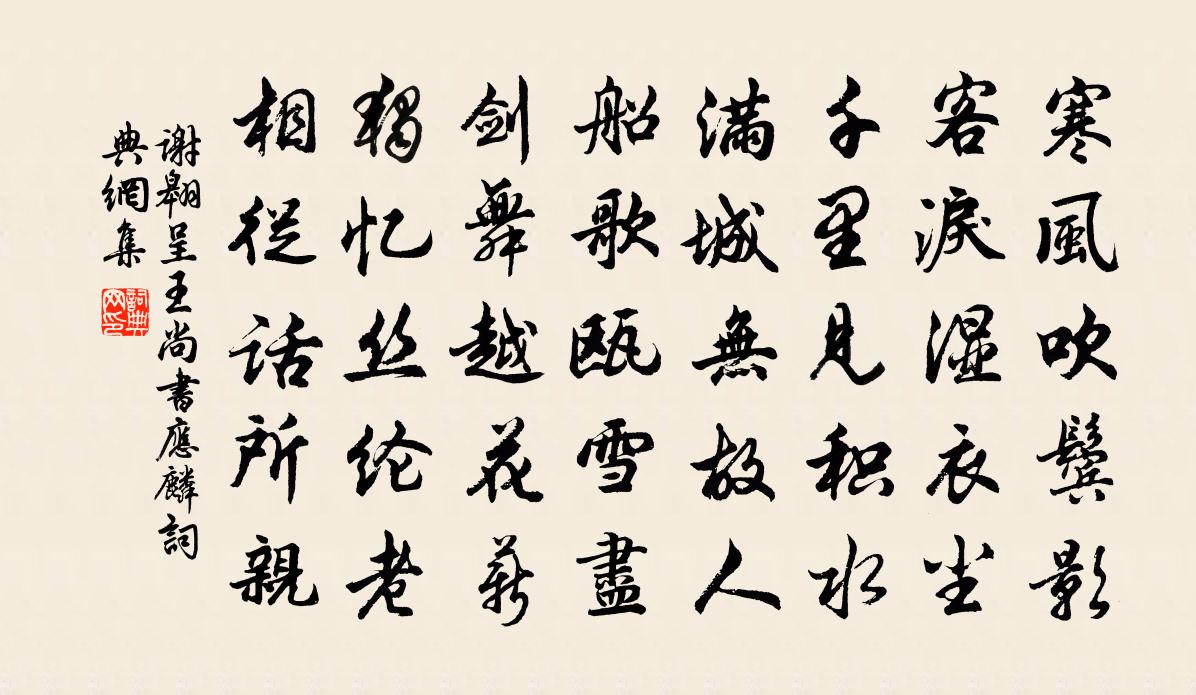 寒風吹鬢影
客淚湿衣尘
千里見积水
滿城無故人
船歌瓯雪盡
剑舞越花新
獨忆丝纶老
相從话所親
謝翱呈王尚書應麟詞
典網集
詞典
网印